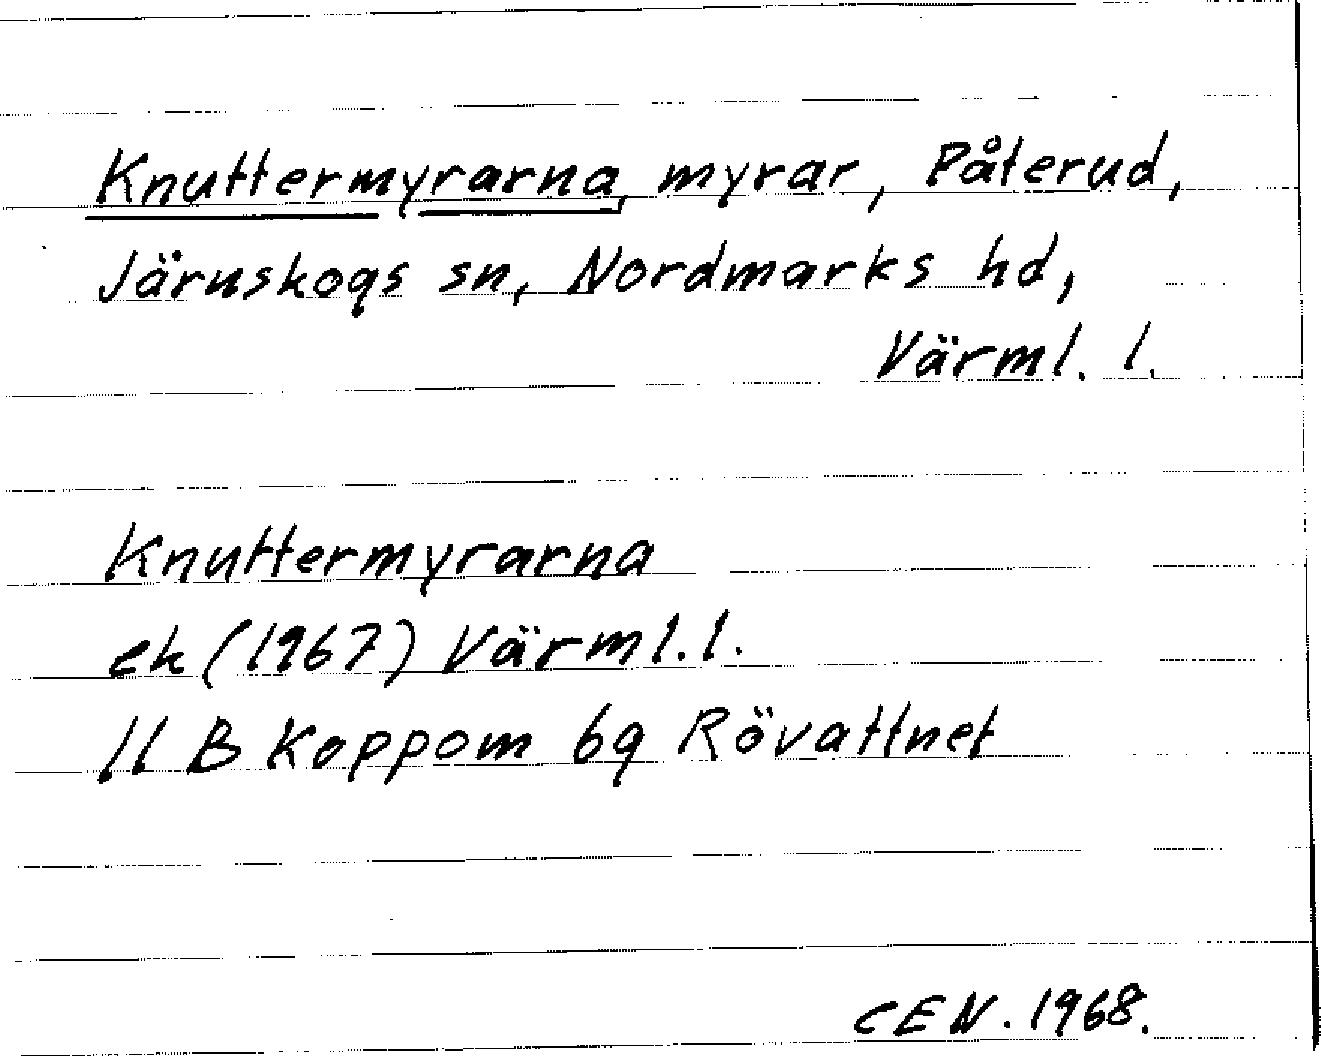 Knuttermyrarna, myrar, Påterud,
Järnskogs sn, Nordmarks hd,
Värml. l.
Knuttermyrarna
ek (1967) Värml. l.
11 B Koppom 6g Rövattnet
CEN. 1968.